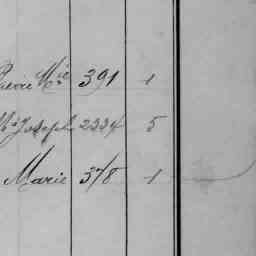 Pierre Mie 391 1
Joseph 2334 5
Marie 378 1